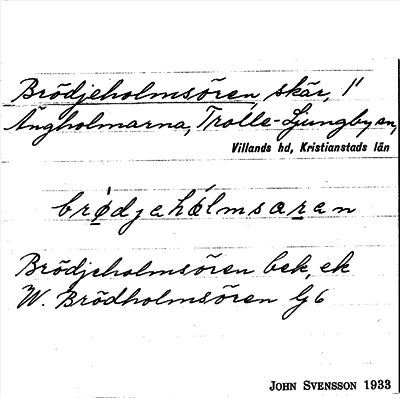 Brödjeholmsören, skär, i
Ängholmarna, Trolle-Ljungby sn,
Villands hd, Kristianstads län
Brödjeholmsören bek, ek
W. Brödholmsören
JOHN SVENSSON 1933